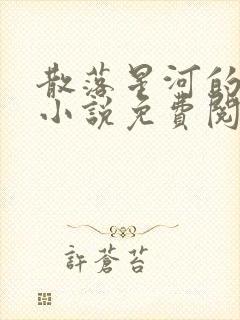 散落星河的
小說免費閱
許蒼苔